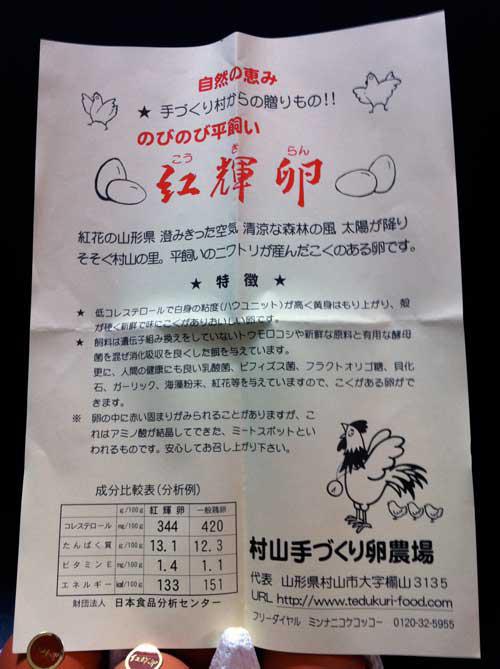 自然の恵み
★ 手づくり村からの贈りもの!!
のびのび平飼い
こう き らん
紅輝卵
紅花の山形県 澄みきった空気 清涼な森林の風 太陽が降り
そそぐ村山の里。平飼いのニワトリが産んだこくのある卵です。
★ 特 徴 ★
★ 低コレステロールで白身の粘度(ハウユニット)が高く黄身はもり上がり、殻
が硬く新鮮で味にこくがありおいしい卵です。
★ 飼料は遺伝子組み換えをしていないトウモロコシや新鮮な原料と有用な酵母
菌を混ぜ消化吸収を良くした餌を与えています。
更に、人間の健康にも良い乳酸菌、ビフィズス菌、フラクトオリゴ糖、貝化
石、ガーリック、海藻粉末、紅花等を与えていますので、こくがある卵がで
きます。
※ 卵の中に赤い固まりがみられることがありますが、こ
れはアミノ酸が結晶してできた、ミートスポットとい
われるものです。安心してお召し上がり下さい。
成分比較表(分析例)
g/100g 紅輝卵 g/100g 一般鶏卵
コレステロール mg/100g 344 420
たんぱく質 g/100g 13.1 12.3
ビタミンE mg/100g 1.4 1.1
エネルギー kcal/100g 133 151
財団法人 日本食品分析センター
村山手づくり卵農場
代表 山形県村山市大字櫤山3135
URL http://www.tedukuri-food.com
フリーダイヤル ミツナニコケコッコー 0120-32-5955